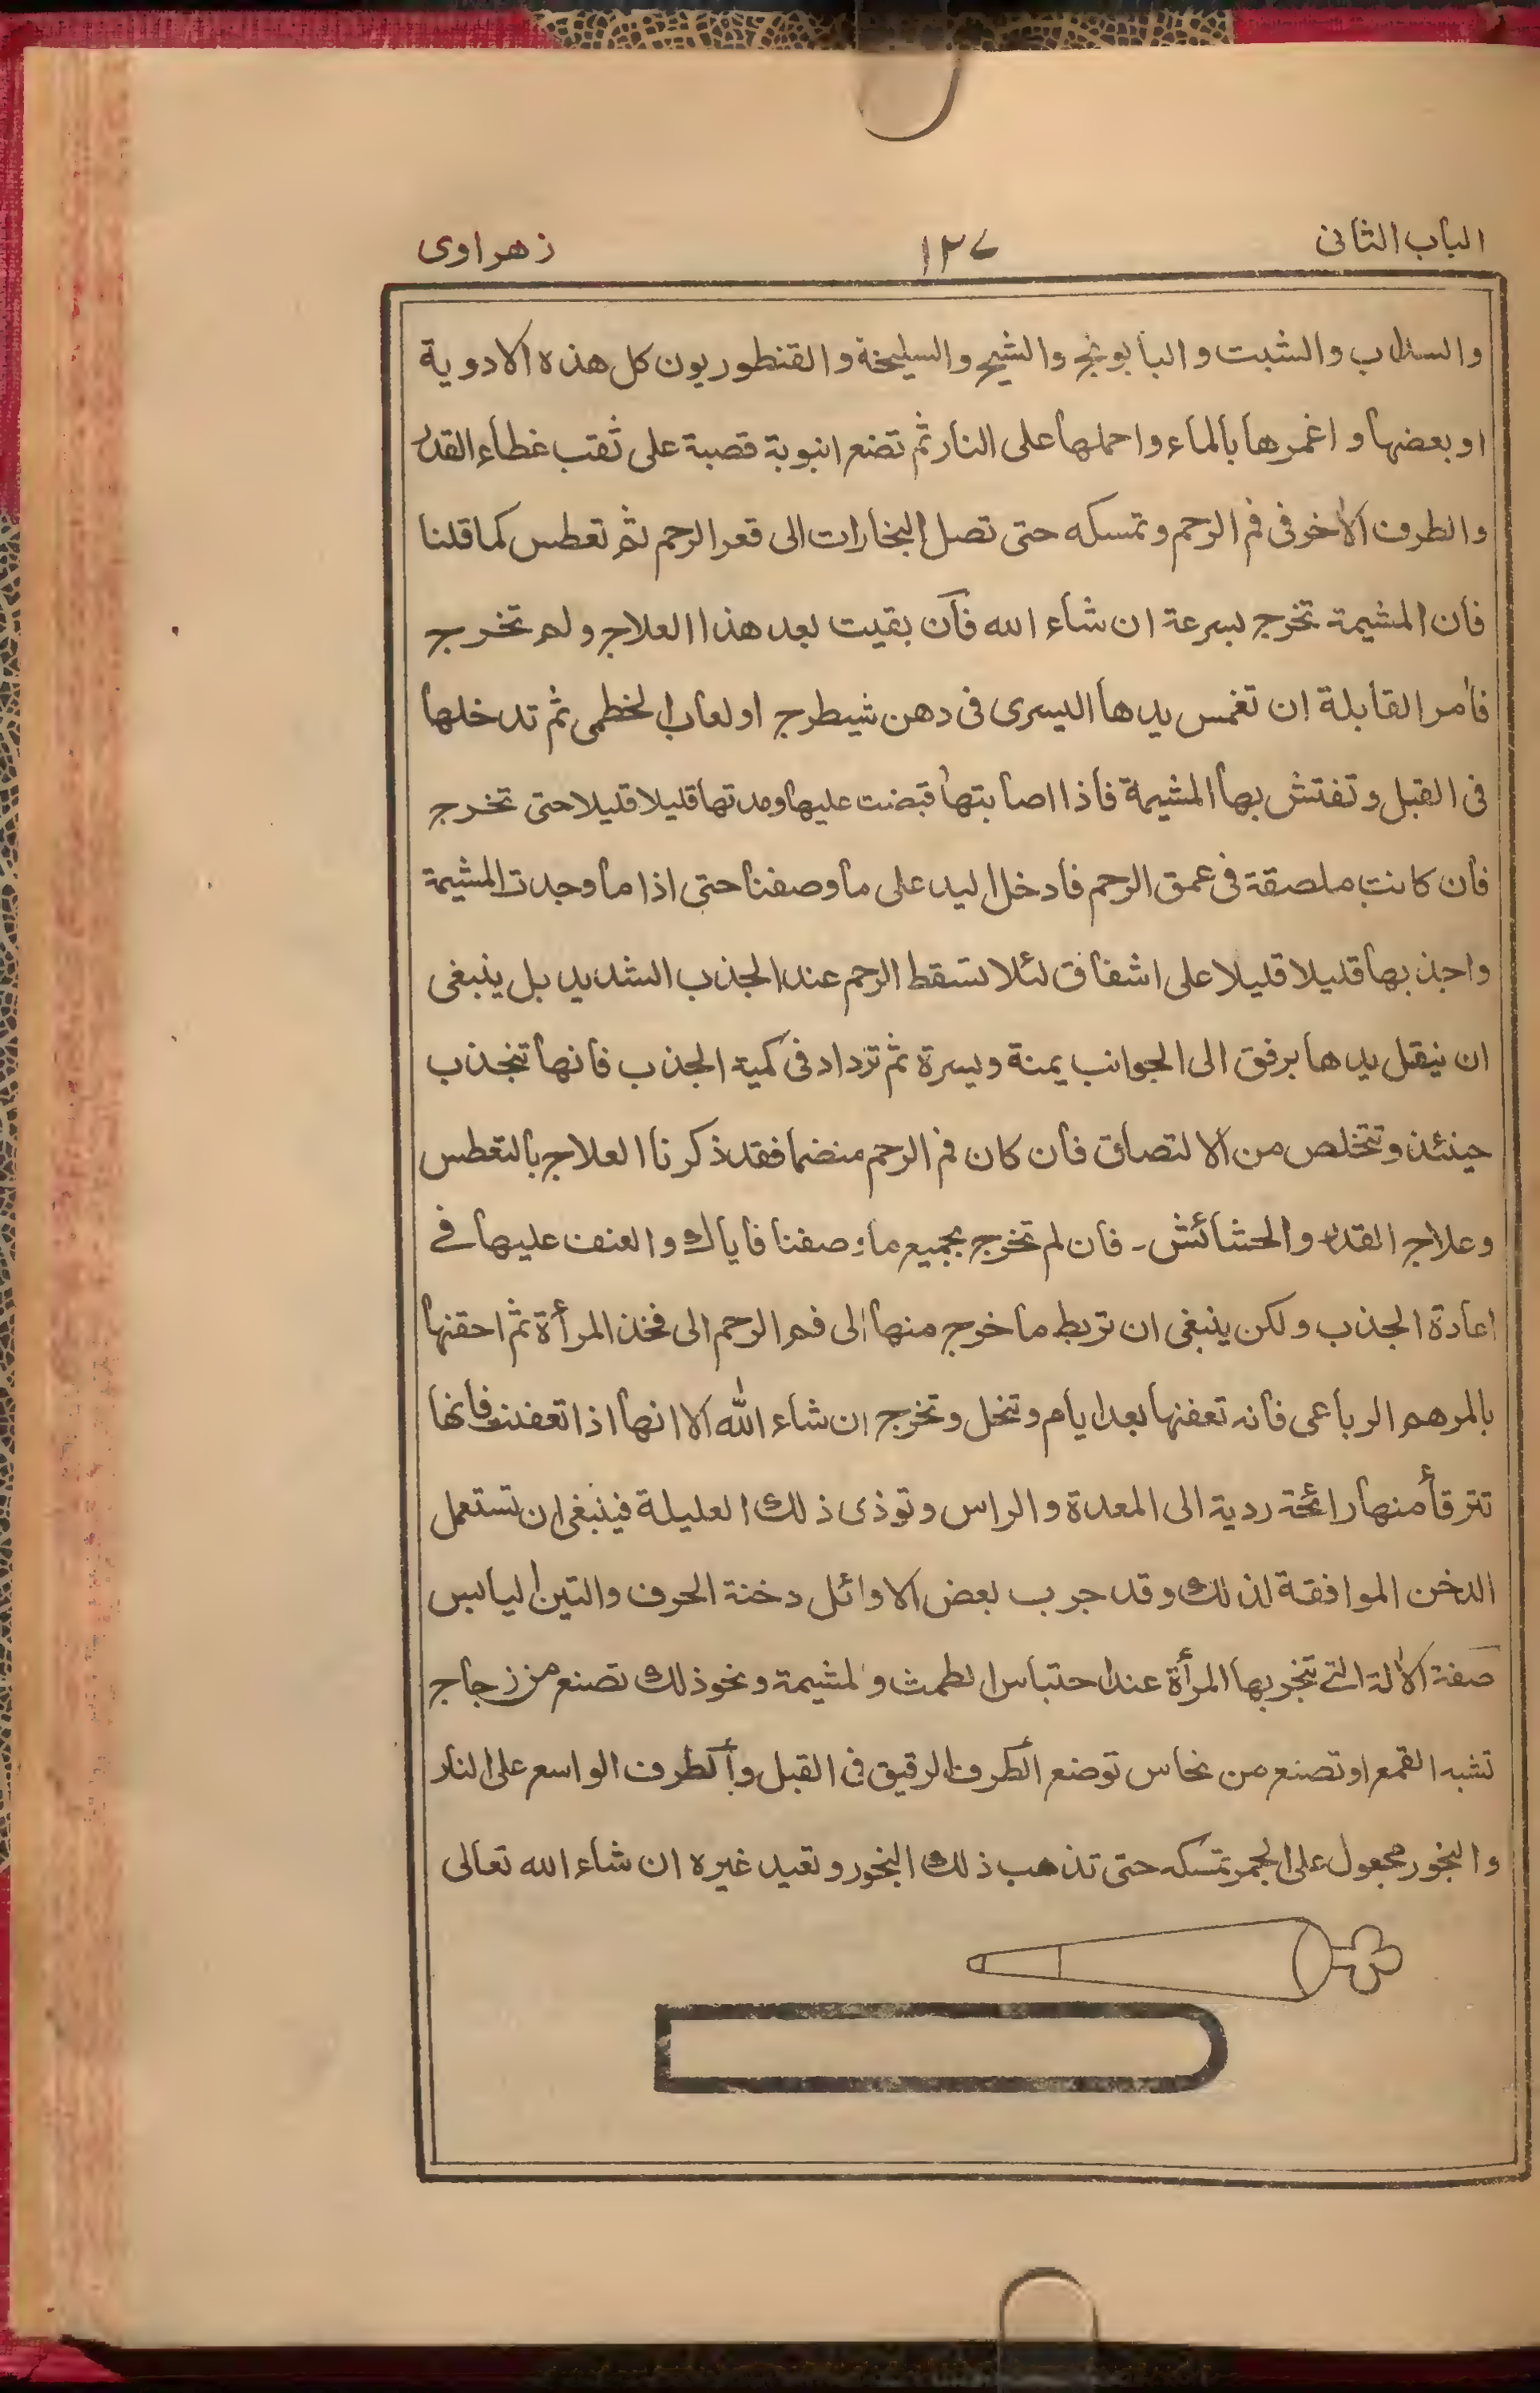 الباب الثانى ١٢٧ زهراوى
والسذاب والشبت والبابونج والشيح والسليخة والقنطوريون كل هذه الادوية
او بعضها و اغمرها بالماء واحملها على النار ثم تضع انبوبة قصبة على ثقب غطاء القدر
والطرف الأخر فى فم الرحم وتمسكه حتى تصل البخارات الى قعر الرحم ثم تعطس كما قلنا
فان المشيمة تخرج بسرعة ان شاء الله فان بقيت بعد هذا العلاج ولم تخرج
فأمر القابلة ان تغمس يدها اليسرى فى دهن شيطرج او لعاب الخطمى ثم تدخلها
فى القبل وتفتش بها المشيمة فاذا اصابتها قبضت عليها ومدتها قليلا قليلا حتى تخرج
فان كانت ملصقة فى عمق الرحم فادخل اليد على ما وصفنا حتى اذا ما وجدت المشيمة
واجذبها قليلا قليلا على اشفاق لئلا تسقط الرحم عند الجذب الشديد بل ينبغى
ان ينقل يدها برفق الى الجوانب يمنة ويسرة ثم تزداد فى كمية الجذب فانها تنجذب
حينئذ وتتخلص من الالتصاق فان كان فم الرحم منضما فقد ذكرنا العلاج بالتعطس
وعلاج القدر والحشائش - فان لم تخرج بجميع ما وصفنا فاياك والعنف عليها فے
اعادة الجذب ولكن ينبغى ان تربط ما خرج منها الى فم الرحم الى فخذ المرأة ثم احقنها
بالمرهم الرباعى فانه تعفنها بعد ايام وتنحل وتخرج ان شاء الله الا انها اذا تعفنت فانها
تترقأ منها رائحة ردية الى المعدة والراس وتوذى ذلك العليلة فينبغى ان تستعمل
الدخن الموافقة لذلك وقد جرب بعض الاوائل دخنة الحرف والتين اليابس
صفة الألة التے تتبخر بها المرأة عند احتباس الطمث والمشيمة ونحو ذلك تصنع من زجاج
تشبه القمع او تصنع من نحاس توضع الطرف الرقيق فى القبل والطرف الواسع على النار
والبخور مجعول على الجمر تمسكه حتى تذهب ذلك البخور وتعيد غيره ان شاء الله تعالى